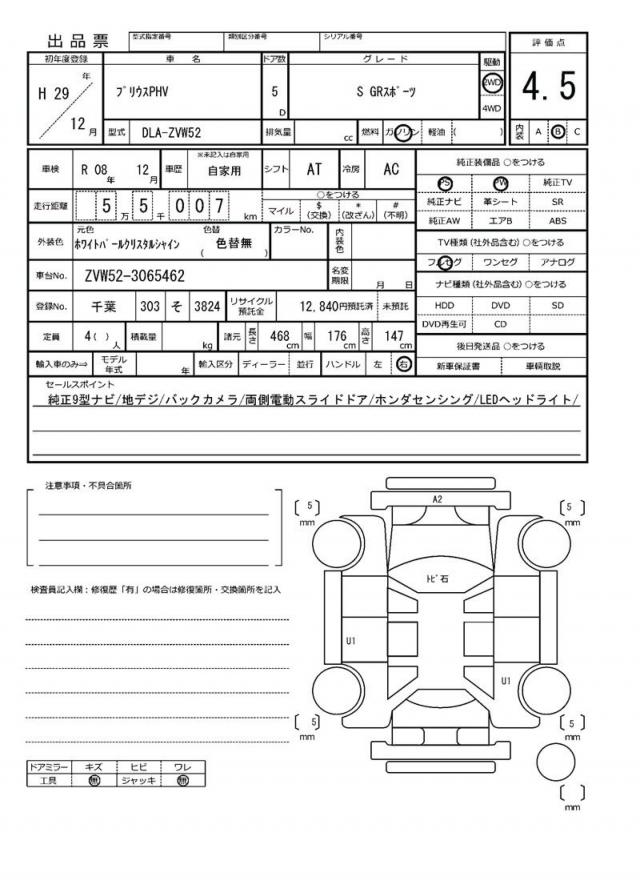 出品票 型式指定番号 類別区分番号 シリアル番号
評価点
4.5
内装 A B C
初年度登録 車名 ドア数 グレード 駆動
H 29年 12月 プリウスPHV 5D S GRスポーツ 2WD 4WD
型式 DLA-ZVW52 排気量 cc 燃料 ガソリン 軽油 ( )
車検 R 08年 12月 車歴 ※未記入は自家用 自家用 シフト AT 冷房 AC
走行距離 5 5万 5千 0 0 7 km
○をつける
マイル $(交換) *(改ざん) #(不明)
外装色 元色 ホワイトパールクリスタルシャイン 色替 ( 色替無 ) カラーNo. 内装色
車台No. ZVW52-3065462 名変期限 月 日
登録No. 千葉 303 そ 3824 リサイクル預託金 12,840円預託済 未預託
定員 4( )人 積載量 kg 諸元 長さ 468cm 幅 176cm 高さ 147cm
輸入車のみ⇒ モデル年式 年 輸入区分 ディーラー 並行 ハンドル 左 右
純正装備品 ○をつける
PS PW 純正TV
純正ナビ 革シート SR
純正AW エアB ABS
TV種類(社外品含む)○をつける
フルセグ ワンセグ アナログ
ナビ種類(社外品含む)○をつける
HDD DVD SD
DVD再生可 CD
後日発送品 ○をつける
新車保証書 車輌取説
セールスポイント
純正9型ナビ/地デジ/バックカメラ/両側電動スライドドア/ホンダセンシング/LEDヘッドライト/
注意事項・不具合箇所
検査員記入欄：修復歴「有」の場合は修復箇所・交換箇所を記入
[ 5 ] mm
A2
[ 5 ] mm
トビ石
U1
U1
[ 5 ] mm
[ 5 ] mm
[ ] mm
ドアミラー キズ ヒビ ワレ
工具 無 ジャッキ 無